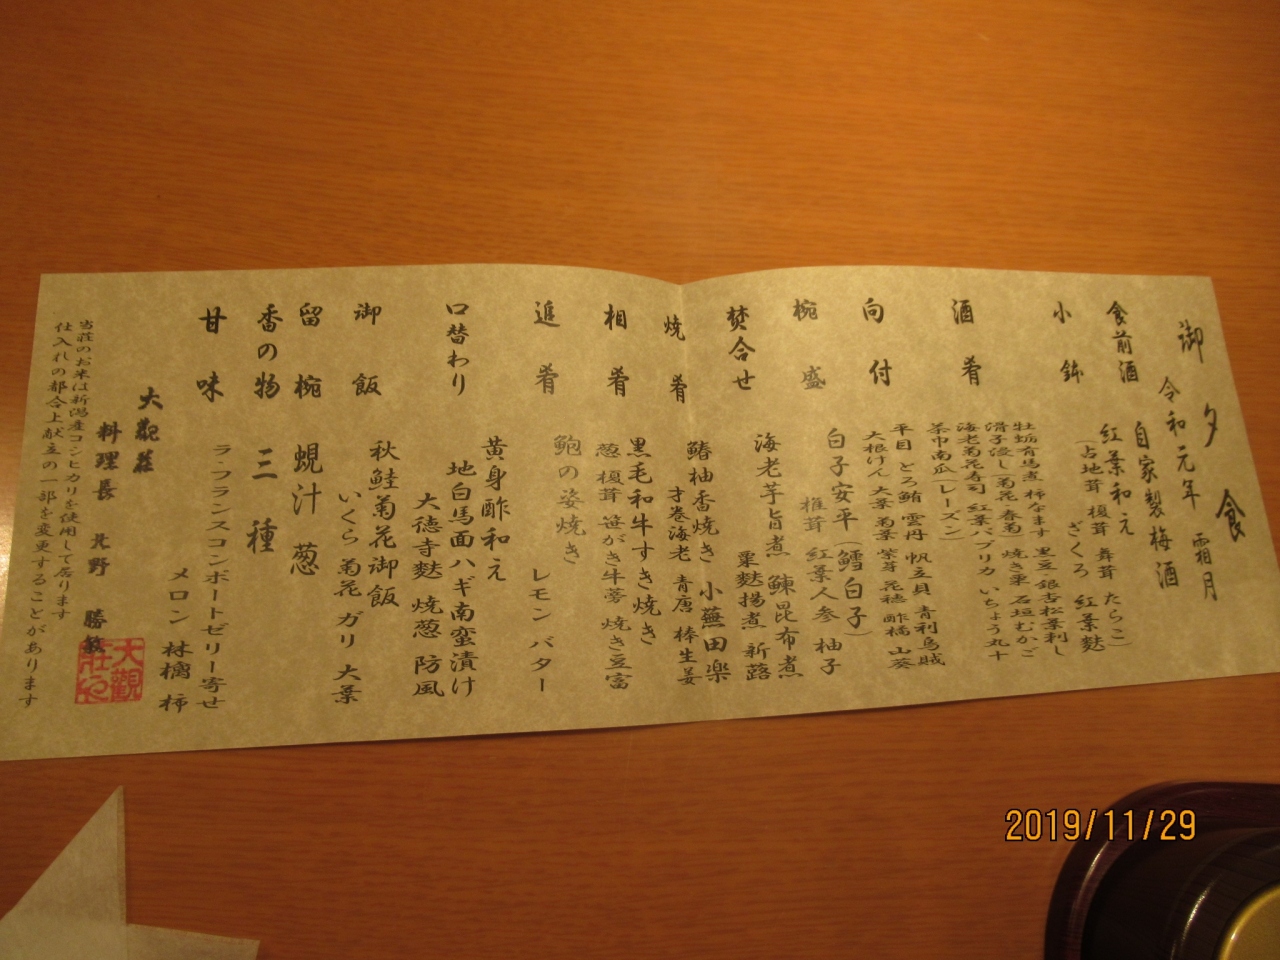 御夕食
令和元年 霜月
食前酒 自家製梅酒
小鉢 紅葉和え
(占地茸 榎茸 舞茸 たらこ)
ざくろ 紅葉麩
酒肴 牡蛎有馬煮 柿なます 黒豆 銀杏松葉刺し
滑子浸し(菊花 春菊) 焼き栗 石垣むかご
海老菊花寿司 紅葉パプリカ いちょう丸十
茶巾南瓜(レーズン)
向付 平目 とろ鮪 雲丹 帆立貝 青利烏賊
大根けん 大葉 菊葉 紫芽 花穂 酢橘 山葵
椀盛 白子安平(鱈白子)
椎茸 紅葉人参 柚子
焚合せ 海老芋旨煮 鰊昆布煮
粟麩揚煮 新蕗
焼肴 鰆柚香焼き 小蕪田楽
才巻海老 青唐 棒生姜
相肴 黒毛和牛すき焼き
葱 榎茸 笹がき牛蒡 焼き豆富
追肴 鮑の姿焼き
レモン バター
口替わり 黄身酢和え
地白馬面ハギ南蛮漬け
大徳寺麩 焼葱 防風
御飯 秋鮭菊花御飯
いくら 菊花 ガリ 大葉
留椀 蜆汁 葱
香の物 三種
甘味 ラ・フランスコンポートゼリー寄せ
メロン 林檎 柿
大観荘
料理長 北野 勝敏
当荘のお米は新潟産コシヒカリを使用して居ります
仕入れの都合上献立の一部を変更することがあります
大觀
荘
2019/11/29